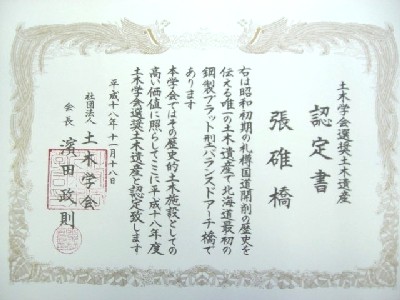 土木学会選奨土木遺産
認定書
張碓橋
右は昭和初期の札樽国道開削の歴史を
伝える唯一の土木遺産で北海道最初の
鋼製プラット型バランスドアーチ橋で
あります
本学会ではその歴史的土木施設としての
高い価値に照らしてここに平成十八年度
土木学会選奨土木遺産と認定致します
平成十八年十一月十八日
社団法人 土木学会
会長 濱田政則